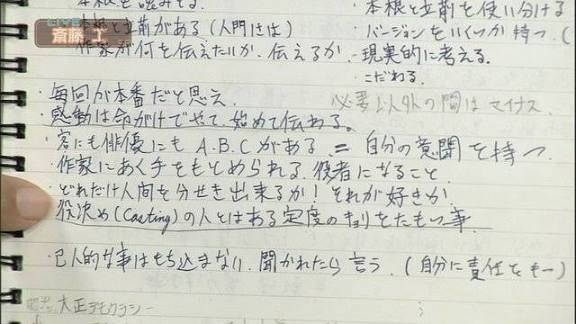 LIVE
斎藤 工
本根を読みとる
本根と立前がある（人門には）
作家が何を伝えたいか、伝えるか
・本根と立前を使い分ける
・バージョンをいくつか持つ（
・現実的に考える。
・こだわる。
・毎回が本番だと思え、
必要以外の間はマイナス
・感動は命がけでやって始めて伝わる。
・客にも俳優にも A.B.Cがある = 自分の意聞を持つ
・作家にあく手をもとめられる役者になること
・どれだけ人間を分せき出来るか！それが好きか、
役決め（Casting）の人とはある定度のキョリをたもつ事
・己人的な事はもち込まない、聞かれたら言う（自分に責任をもー）
大正デモクラシー